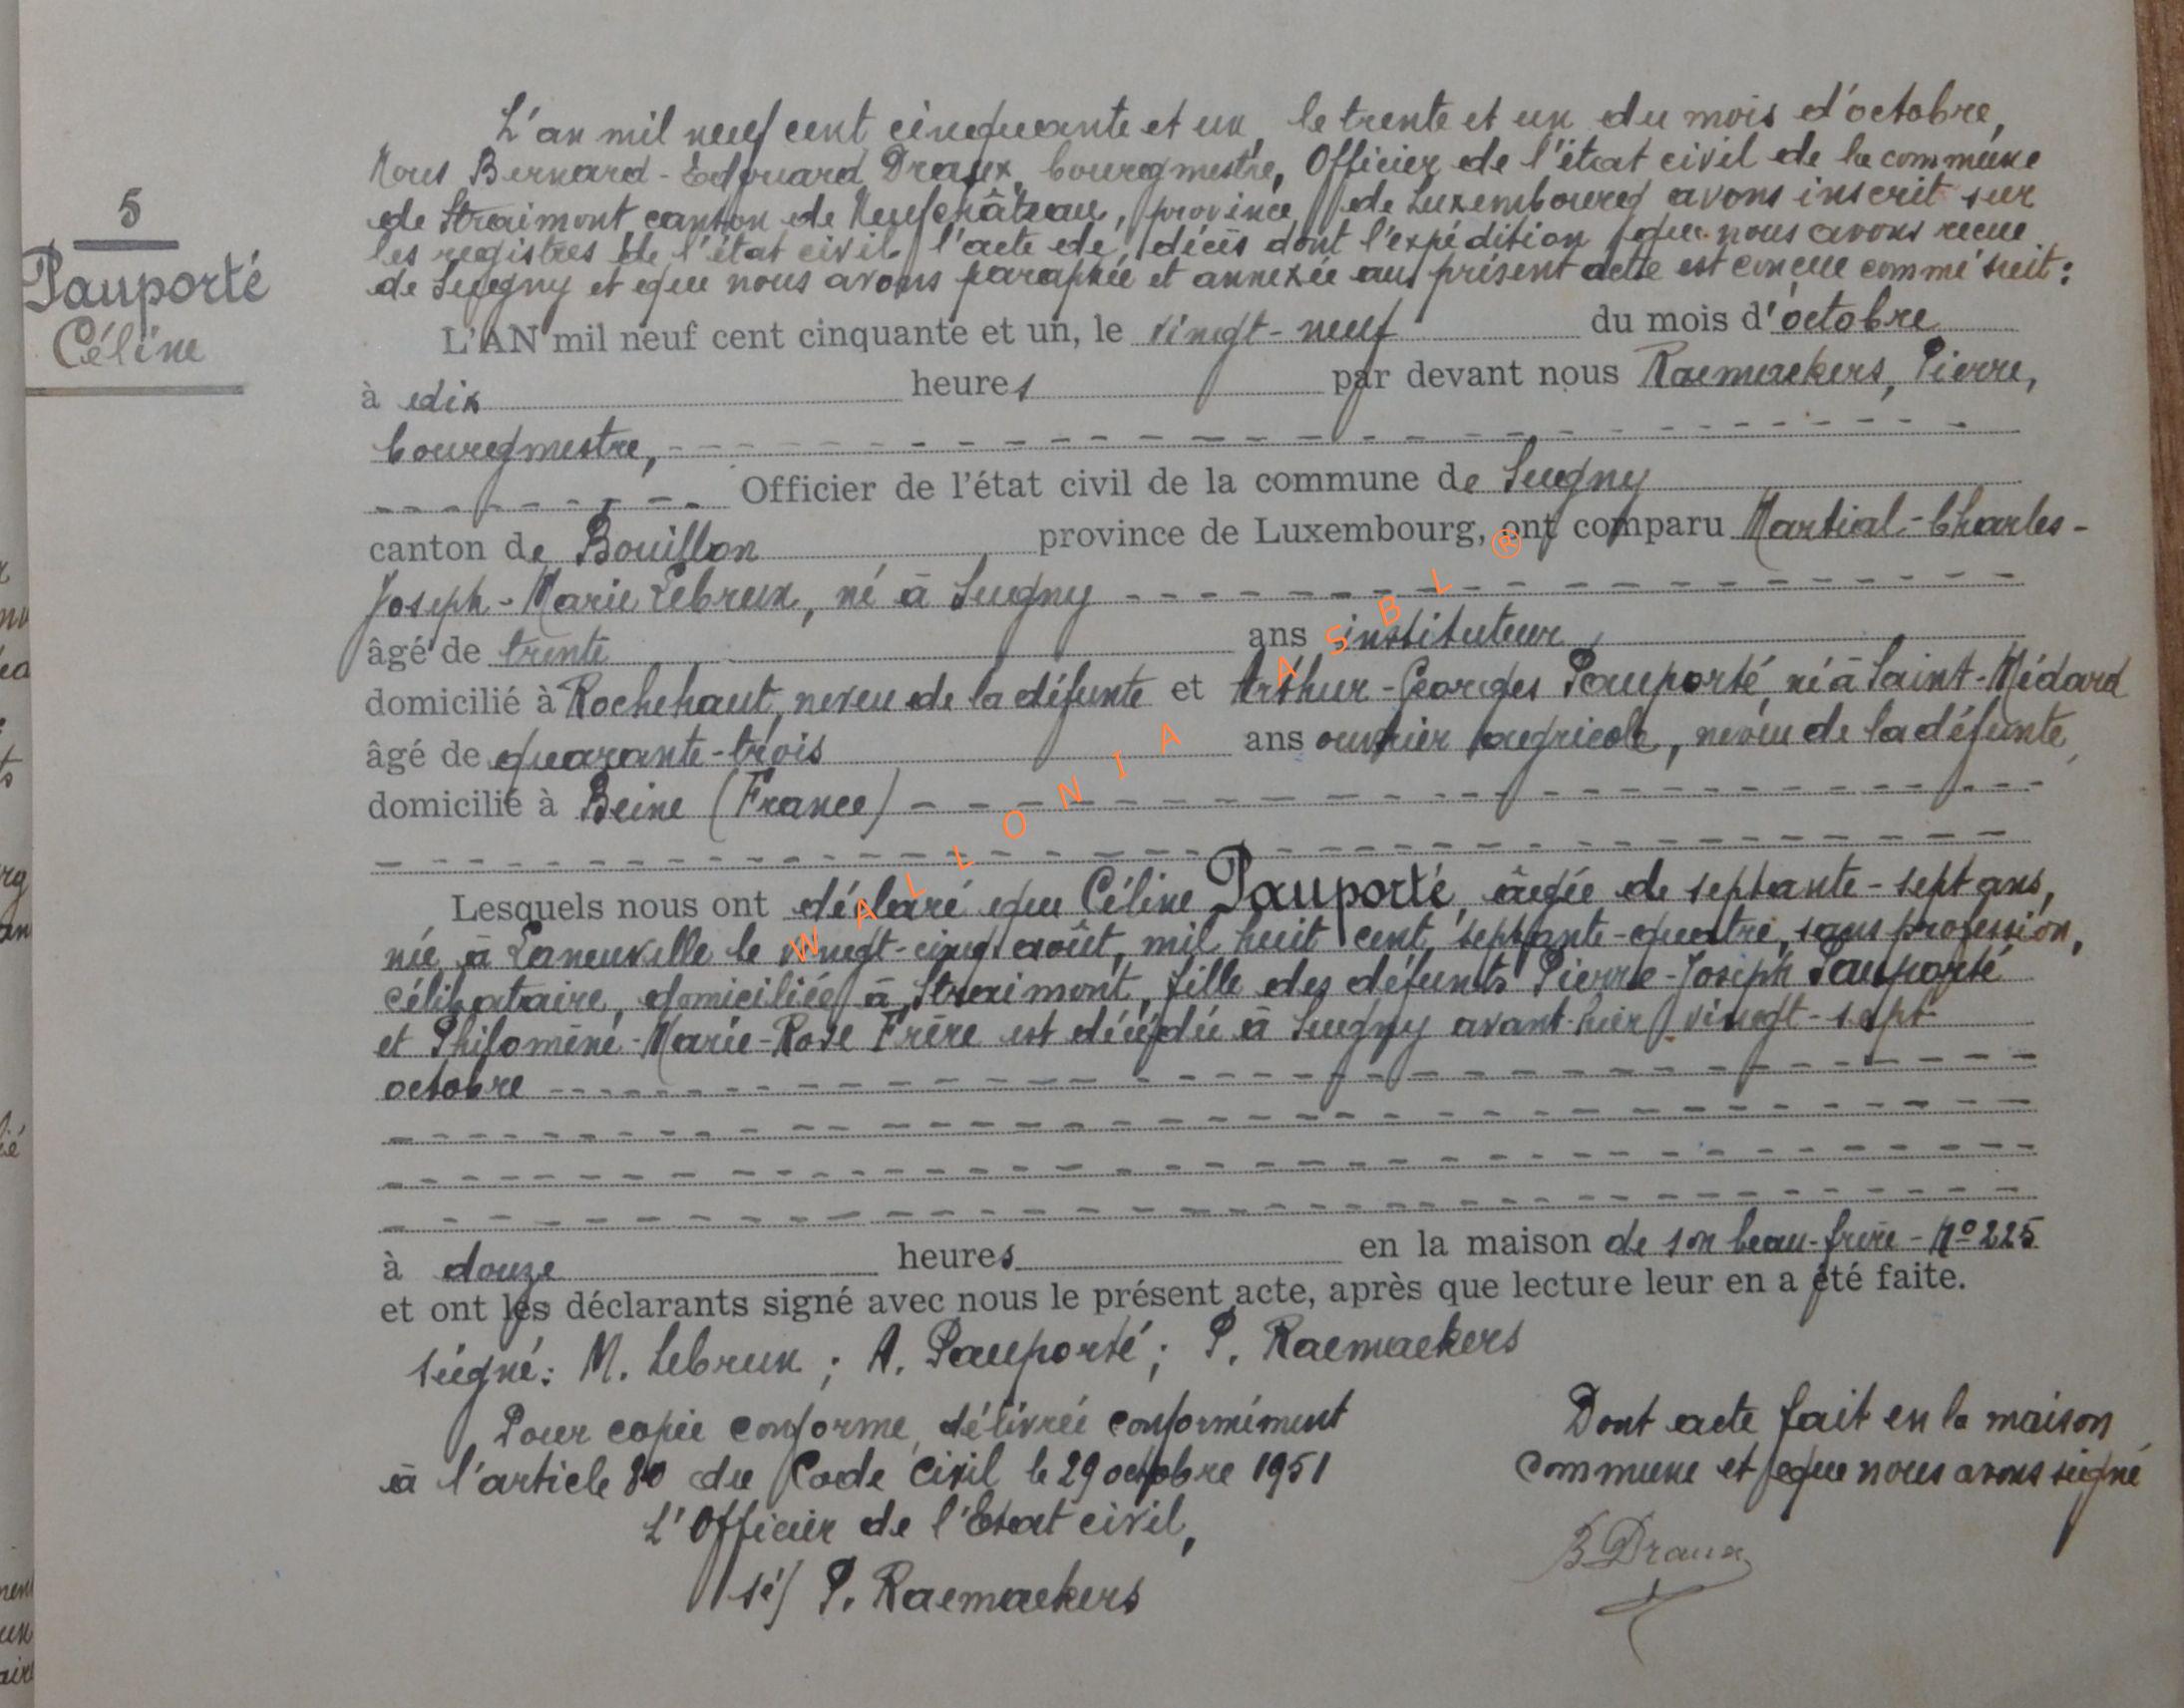 5
Pauporté
Céline
L'an mil neuf cent cinquante et un, le trente et un du mois d'octobre,
Nous Bernard-Edouard Draux, bourgmestre, Officier de l'état civil de la commune
de Straimont, canton de Neufchâteau, province de Luxembourg avons inscrit sur
les registres de l'état civil l'acte de décès dont l'expédition que nous avons reçue
de Sugny et que nous avons paraphée et annexée au présent acte est conçue comme suit :
L'AN mil neuf cent cinquante et un, le vingt-neuf du mois d'octobre
à dix heures par devant nous Raemaekers, Pierre,
bourgmestre,
Officier de l'état civil de la commune de Sugny
canton de Bouillon province de Luxembourg, ont comparu Martial-Charles-
Joseph-Marie Lebrun, né à Sugny
âgé de trente ans instituteur,
domicilié à Rochehaut, neveu de la défunte et Arthur-Georges Pauporté, né à Saint-Médard
âgé de quarante-trois ans ouvrier agricole, neveu de la défunte,
domicilié à Beine (France)
Lesquels nous ont déclaré que Céline Pauporté, âgée de septante-sept ans,
née à Laneuville le vingt-cinq août, mil huit cent septante-quatre, sans profession,
célibataire, domiciliée à Straimont, fille des défunts Pierre-Joseph Pauporté
et Philomène-Marie-Rose Frère est décédée à Sugny avant-hier vingt-sept
octobre
à douze heures en la maison de son beau-frère - N° 225
et ont les déclarants signé avec nous le présent acte, après que lecture leur en a été faite.
signé : M. Lebrun ; A. Pauporté ; P. Raemaekers
Pour copie conforme, délivrée conformément
à l'article 80 du Code civil le 29 octobre 1951
L'Officier de l'Etat civil,
sé) P. Raemaekers
Dont acte fait en la maison
commune et que nous avons signé
B Draux
WALLONIA ASBL ®